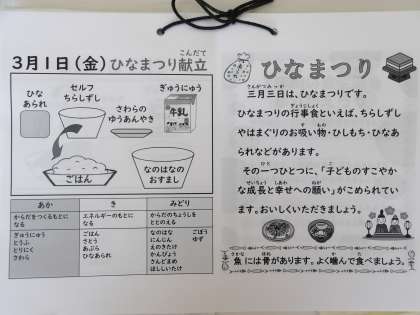 3月1日(金)ひなまつり献立
こんだて
ひな
あられ
セルフ
ちらしずし
さわらの
ゆうあんやき
ぎゅうにゅう
牛乳
ごはん
なのはなの
おすまし
あか
き
みどり
からだをつくるもとに
なる
エネルギーのもとに
なる
からだのちょうしを
ととのえる
ぎゅうにゅう
とうふ
とりにく
さわら
ごはん
さとう
あぶら
ひなあられ
なのはな
にんじん
えのきたけ
かんぴょう
さんどまめ
ほししいたけ
ごぼう
ゆず
ひなまつり
三月三日は、ひなまつりです。
ひなまつりの行事食といえば、ちらしずし
やはまぐりのお吸い物・ひしもち・ひなあ
られなどがあります。
その一つひとつに、「子どものすこやか
な成長と幸せへの願い」がこめられてい
ます。おいしくいただきましょう。
魚には骨があります。よく噛んで食べましょう。